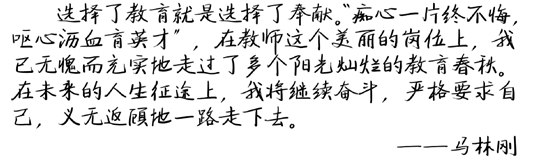 选择了教育就是选择了奉献。“痴心一片终不悔，
呕心沥血育英才”，在教师这个美丽的岗位上，我
已无愧而充实地走过了多个阳光灿烂的教育春秋。
在未来的人生征途上，我将继续奋斗，严格要求自
己，义无返顾地一路走下去。
——马林刚